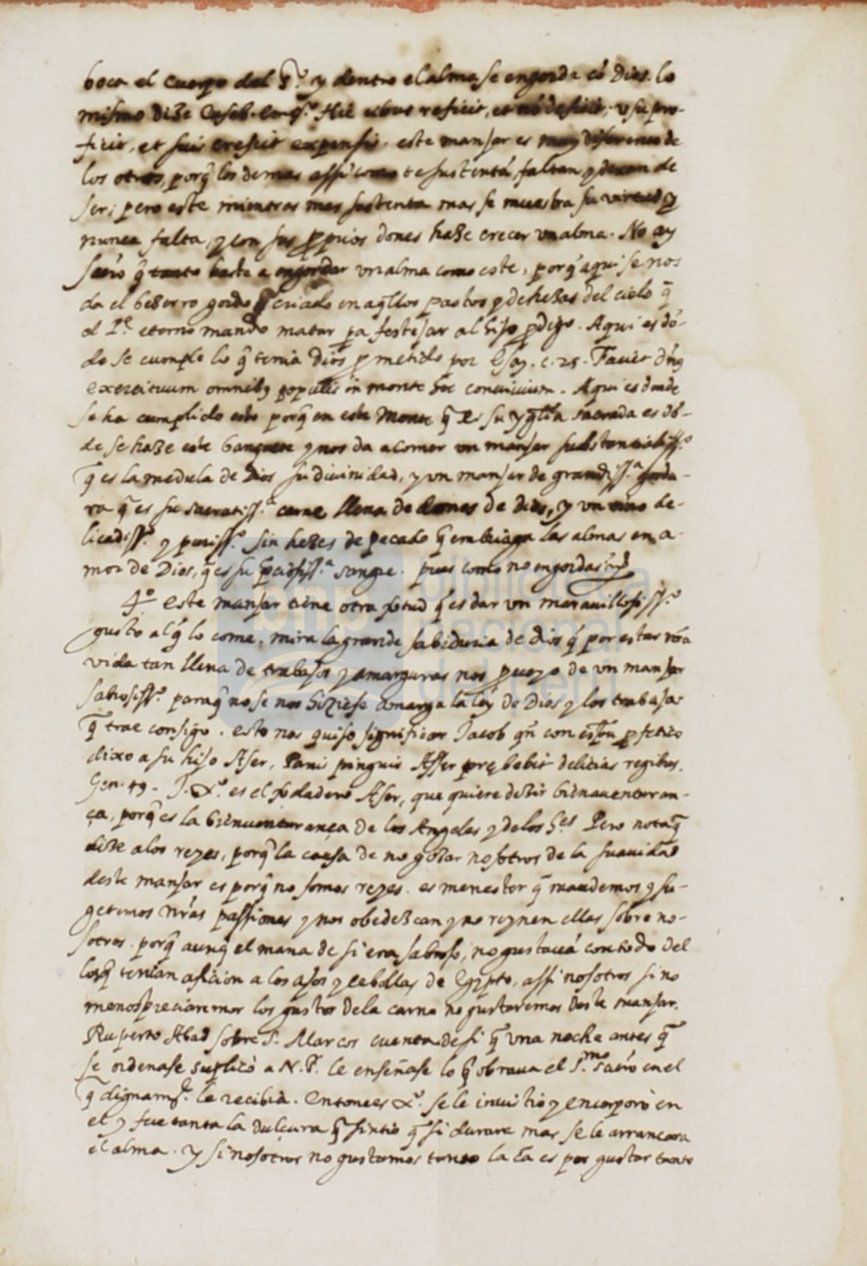 boca el cuerpo del S.ʳ y dentro el alma se engorda cō Dios. lo
mismo dize Euseb. Hic cibus reficit, et nō deficit,
ficit, et suis crescit expensis. este manjar es muy diferente de
los otros, porq̄ los demas assi como te sustentā, faltan y dexan de
ser; pero este mientras mas sustenta mas se muestra su virtud y
nunca falta, y con sus ꝓprios dones haze crecer vn alma. No ay
q̄ tanto baste a engordar vn alma como este, porq̄ aqui se nos
da el bezerro gordo criado en aq̄llos pastos y dehezas del cielo q̄
el P.ᵉ eterno mandò matar pa festejar al hijo ꝓdigo. Aqui es dō-
de se cumple lo q̄ tenia Dios ꝓmetido por Esay. c. 25. Faciet dn̄s
exercituum omnibꝰ populis in monte hoc conuiuium. Aqui es donde
se ha cumplido esto porq̄ en este monte q̄ es su ygl̄ia sacrada es dō-
de se haze este banquete y nos da a comer vn manjar substancialiss.º
q̄ es la medula de Dios su diuinidad, y vn manjar de grandiss.ª gordu-
ra q̄ es su sacratiss.ª carne llena de dones de dios, y vn vino de-
licadiss.º y puriss.º sin hezes de pecado q̄ embriaga las almas en a-
mor de Dios, q̄ es su p̄ciosiss.ª sangre. pues como no engordas
4.º este manjar tiene otra q̄ es dar vn marauillosiss.º
gusto al q̄ lo come. mira la grande sabiduria de Dios q̄ por estar nr̄a
vida tan llena de trabajos y amarguras nos ꝓueyo de vn manjar
sabrosiss.º paraq̄ no se nos hiziese amarga la ley de Dios y los trabajos
q̄ trae consigo. esto nos quiso significar Jacob qn̄ con esp̄u ꝓfetico
dixo a su hijo Aser, Panis pinguis Asser prębebit delitias regibus.
Gen. 49. J. X.º es el verdadero Aser, que quiere dezir bienauenturan-
ça, porq̄ es la bienuenturança de los Angeles y de los h.ᵉˢ Pero notaq̄
dize a los reyes, porq̄ la causa de no gozar nosotros de la suauidad
deste manjar es porq̄ no somos reyes. es menester q̄ mandemos y su-
getemos nr̄as passiones y nos obedezcan y no reynen ellas sobre no-
sotros. porq̄ aunq̄ el mana de si era sabroso, no gustauā con todo del
losq̄ tenian aficion a los ajos y cebollas de Egipto, assi nosotros si no
menospreciaremos los gustos dela carne no gustaremos deste manjar.
Ruperto Abad sobre S. Marcos cuenta de si q̄ vna noche antes q̄
se ordenase suplicò a N. S.ʳ le enseñase lo q̄ obraua el S.ᵐᵒ sacrō en el
q̄ dignam.ᵗᵉ le recibia. entonces X.º se le inuistio y encorporò en
el y fue tanta la dulçura q̄ sintio q̄ si durara mas se le arrancara
el alma. y si nosotros no gustamos tanto la cā es por gustar tanto